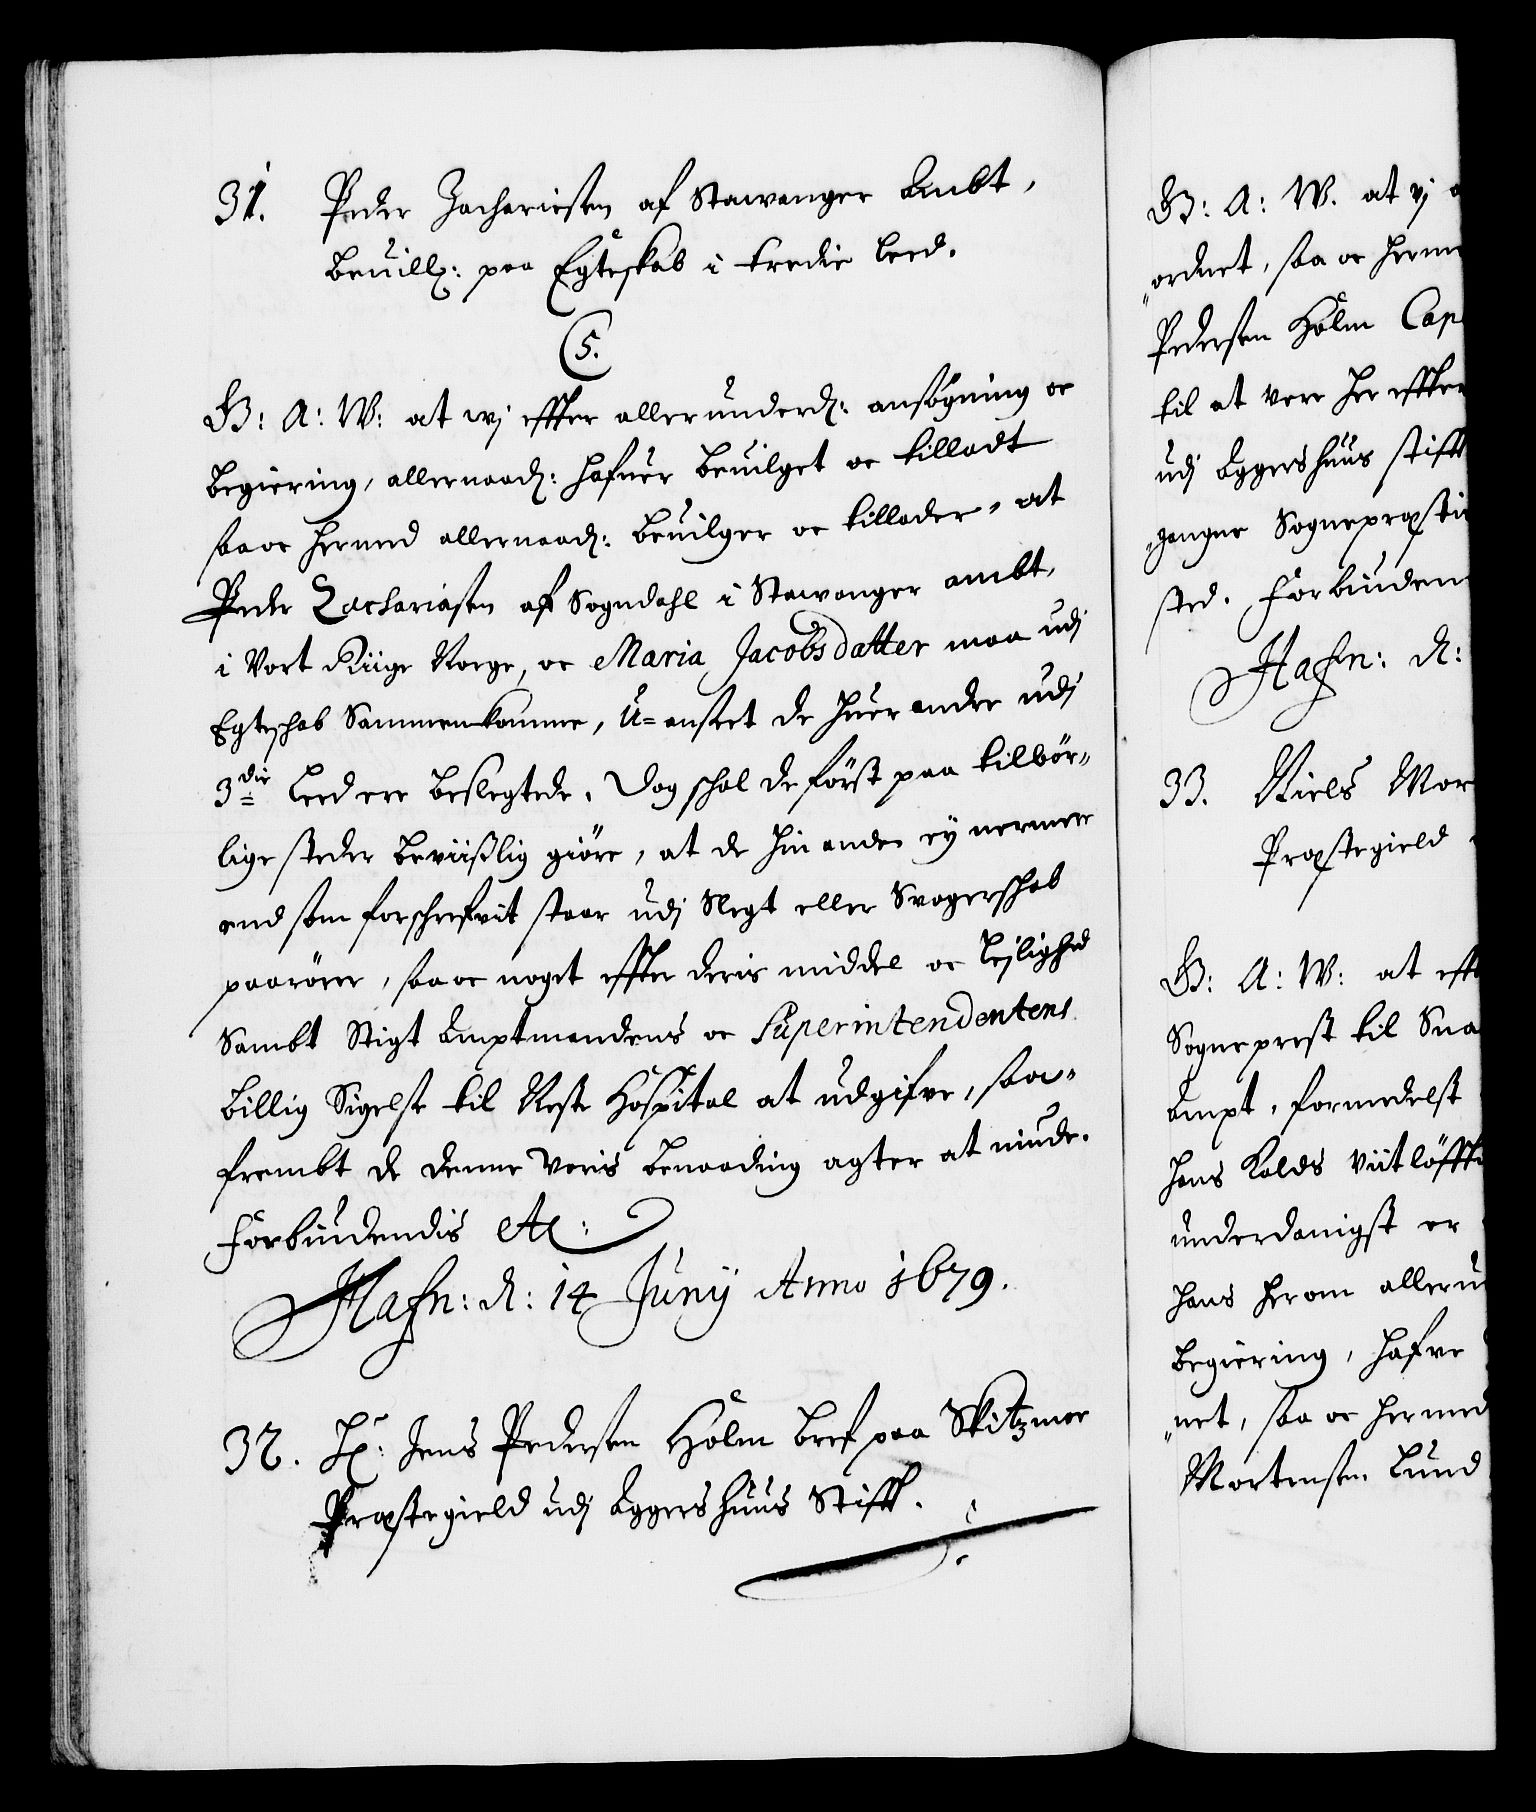 31. Peder Zachariesen af Stawanger Ambt,
Beuill: paa Egteskab i tredie Leed.
(5.
G: A: W: at wj effter allerunderd: ansøgning oc
begiering, allernaad: hafuer beuilget oc tilladt
saa oc hermed allernaad: beuilger oc tillader, at
Peder Zachariasen af Sogndahl i Stawanger ambt,
i Vort Riige Norge, oc Maria Jacobsdatter maa udj
Egteschab Sammenkomme, U-anseet de huer andre udj
3die Leed ere beslegtede. Dog schal de först paa tilbör-
lige steder beviißlig giöre, at de hin anden ey nermere
end som forschrefvit staar udj Slegt eller Svogerschab
paarörer, saa oc noget effter deris middel oc Leylighed
Sambt Stigt Amptmandens oc Superintendentens
billig Sigelse til Neste Hospital at udgifve, saa-
frembt de denne Voris benaading agter at niude.
Forbiudendis etc:
Hafn: d: 14 Junij Anno 1679.
32. Hr: Jens Pedersen Holm bref paa Skitzmoe
Præstegield udj Aggershuus Stifft.
G: A: W. at vj
ordnet, saa oc herme
Pedersen Holm Cap
til at vere her effter
udj Aggershuus stifft
gangne Sogneprestis
sted. Forbiuden
Hafn: d:
33. Niels Mor
Præstegield
G: A: W: at eft
Sogneprest til Sna
Ampt, formedelst
Hans Kolds Viitlöffti
underdanigst er
hans herom alleru
begiering, hafve
net, saa oc hermed
Mortensen Lund